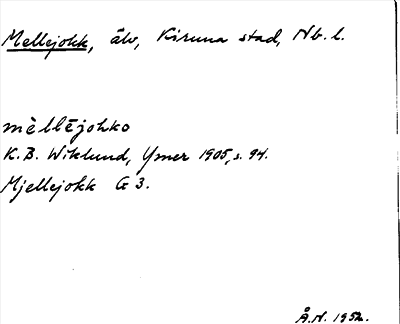 Mellejokk, älv, Kiruna stad, Nb. l.
mèllējohko
K.B. Wiklund, Ymer 1905, s. 94.
Mjellejokk G 3.
Å.N. 1952.